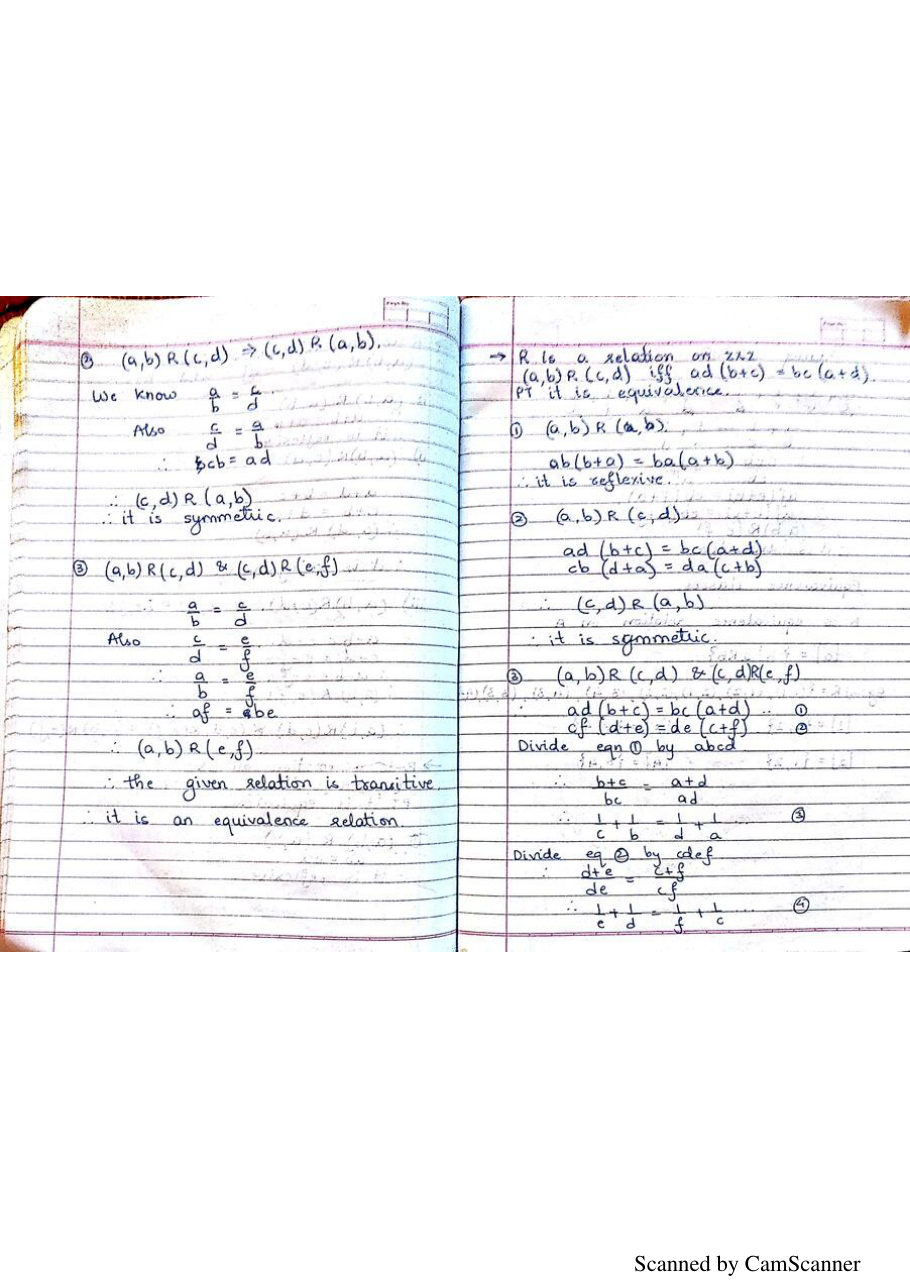 ② (a,b) R (c,d) ⇒ (c,d) R (a,b).
We know a/b = c/d.
Also c/d = a/b
∴ cb = ad
∴ (c,d) R (a,b)
∴ it is symmetric.
③ (a,b) R (c,d) & (c,d) R (e,f)
∴ a/b = c/d
Also c/d = e/f
∴ a/b = e/f
∴ af = be
∴ (a,b) R (e,f)
∴ the given relation is transitive
∴ it is an equivalence relation.
→ R is a relation on zxz
(a,b) R (c,d) iff ad (b+c) = bc (a+d).
PT it is equivalence.
① (a,b) R (a,b).
ab (b+a) = ba (a+b)
∴ it is reflexive.
② (a,b) R (c,d)
ad (b+c) = bc (a+d)
cb (d+a) = da (c+b)
∴ (c,d) R (a,b)
∴ it is symmetric.
③ (a,b) R (c,d) & (c,d) R (e,f)
∴ ad (b+c) = bc (a+d) .. ①
cf (d+e) = de (c+f) ②
Divide eqn ① by abcd
∴ b+c/bc = a+d/ad
∴ 1/c + 1/b = 1/d + 1/a ... ③
Divide eq ② by cdef
∴ d+e/de = c+f/cf
∴ 1/e + 1/d = 1/f + 1/c ... ④
Scanned by CamScanner